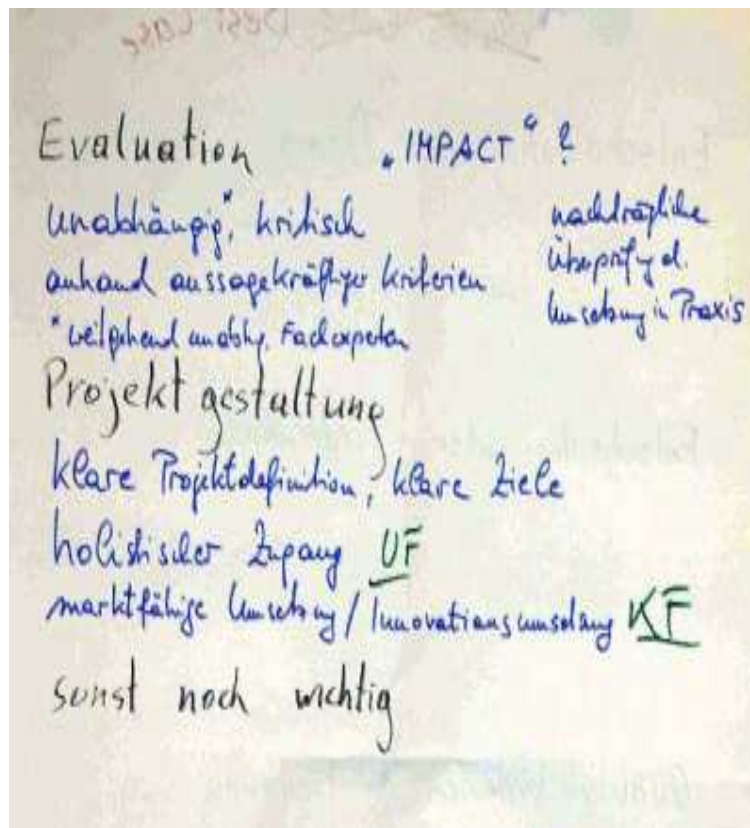 Best Case
Evaluation „IMPACT“ ?
unabhängig*, kritisch
anhand aussagekräftiger Kriterien
* weitgehend unabhg. Fachexperten
nachträgliche
Überprüfg d.
Umsetzung in Praxis
Projektgestaltung
klare Projektdefinition, klare Ziele
holistischer Zugang UF
marktfähige Umsetzung / Innovationsumsetzung KF
sonst noch wichtig